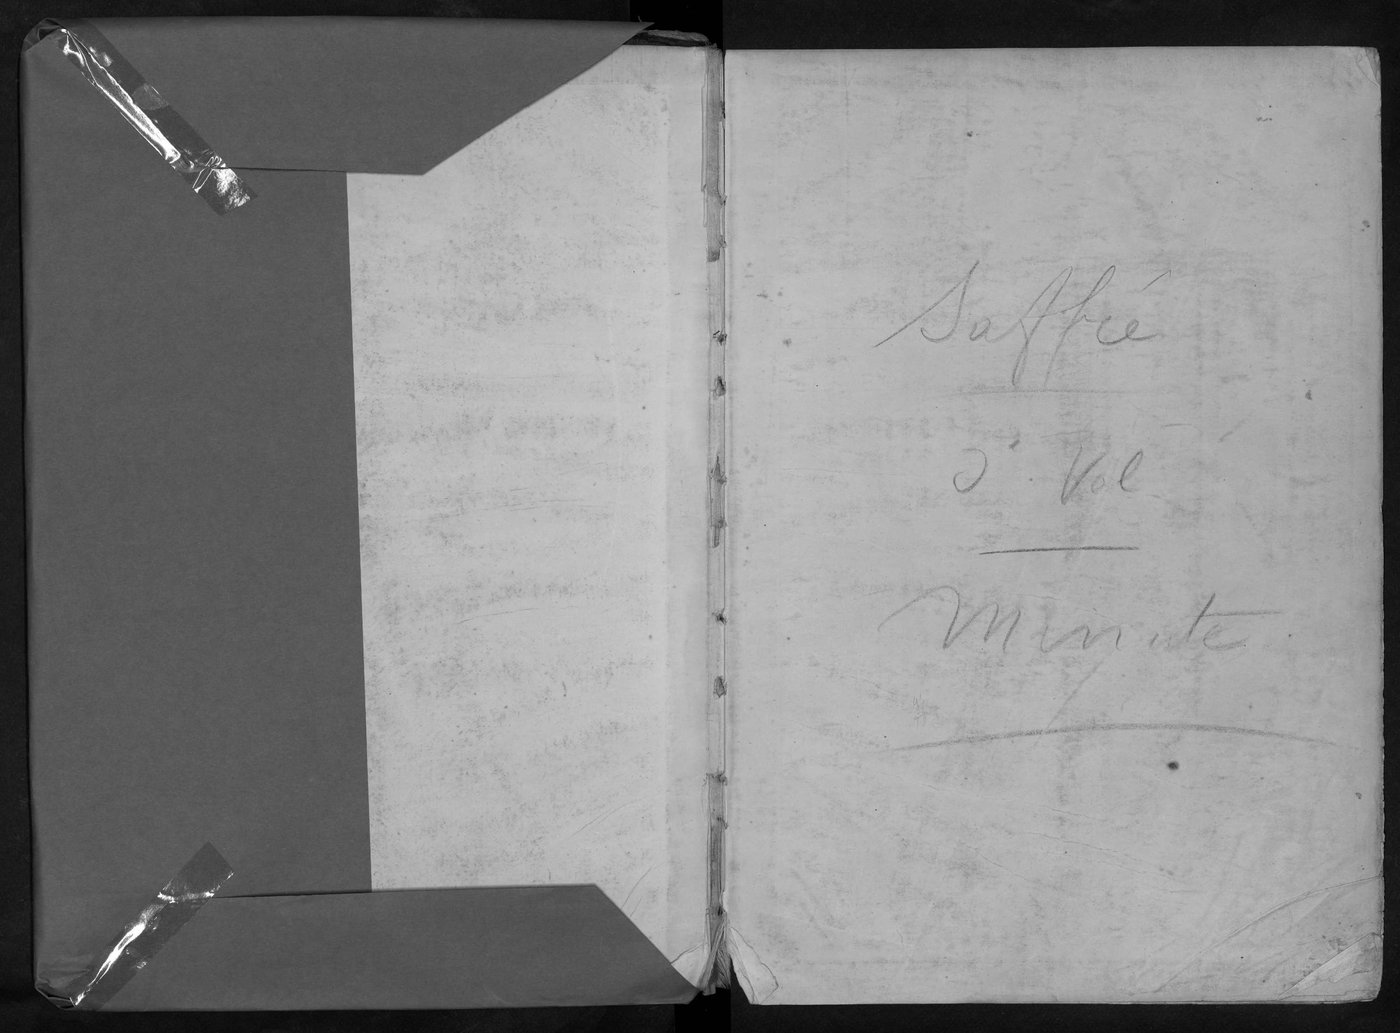 Saffré
Vol
Minute